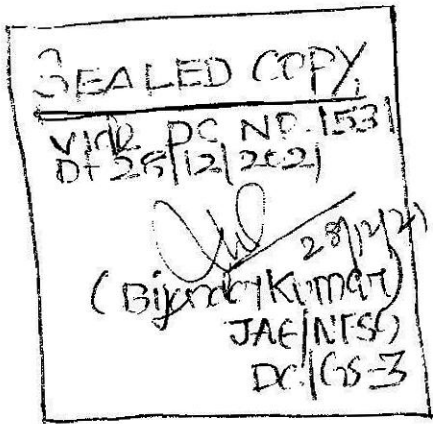 SEALED COPY
VIDE DC NO. 1531
DT 28/12/2021
28/12/21
(Bijender Kumar)
JAE/NTSC
DC/GS-3